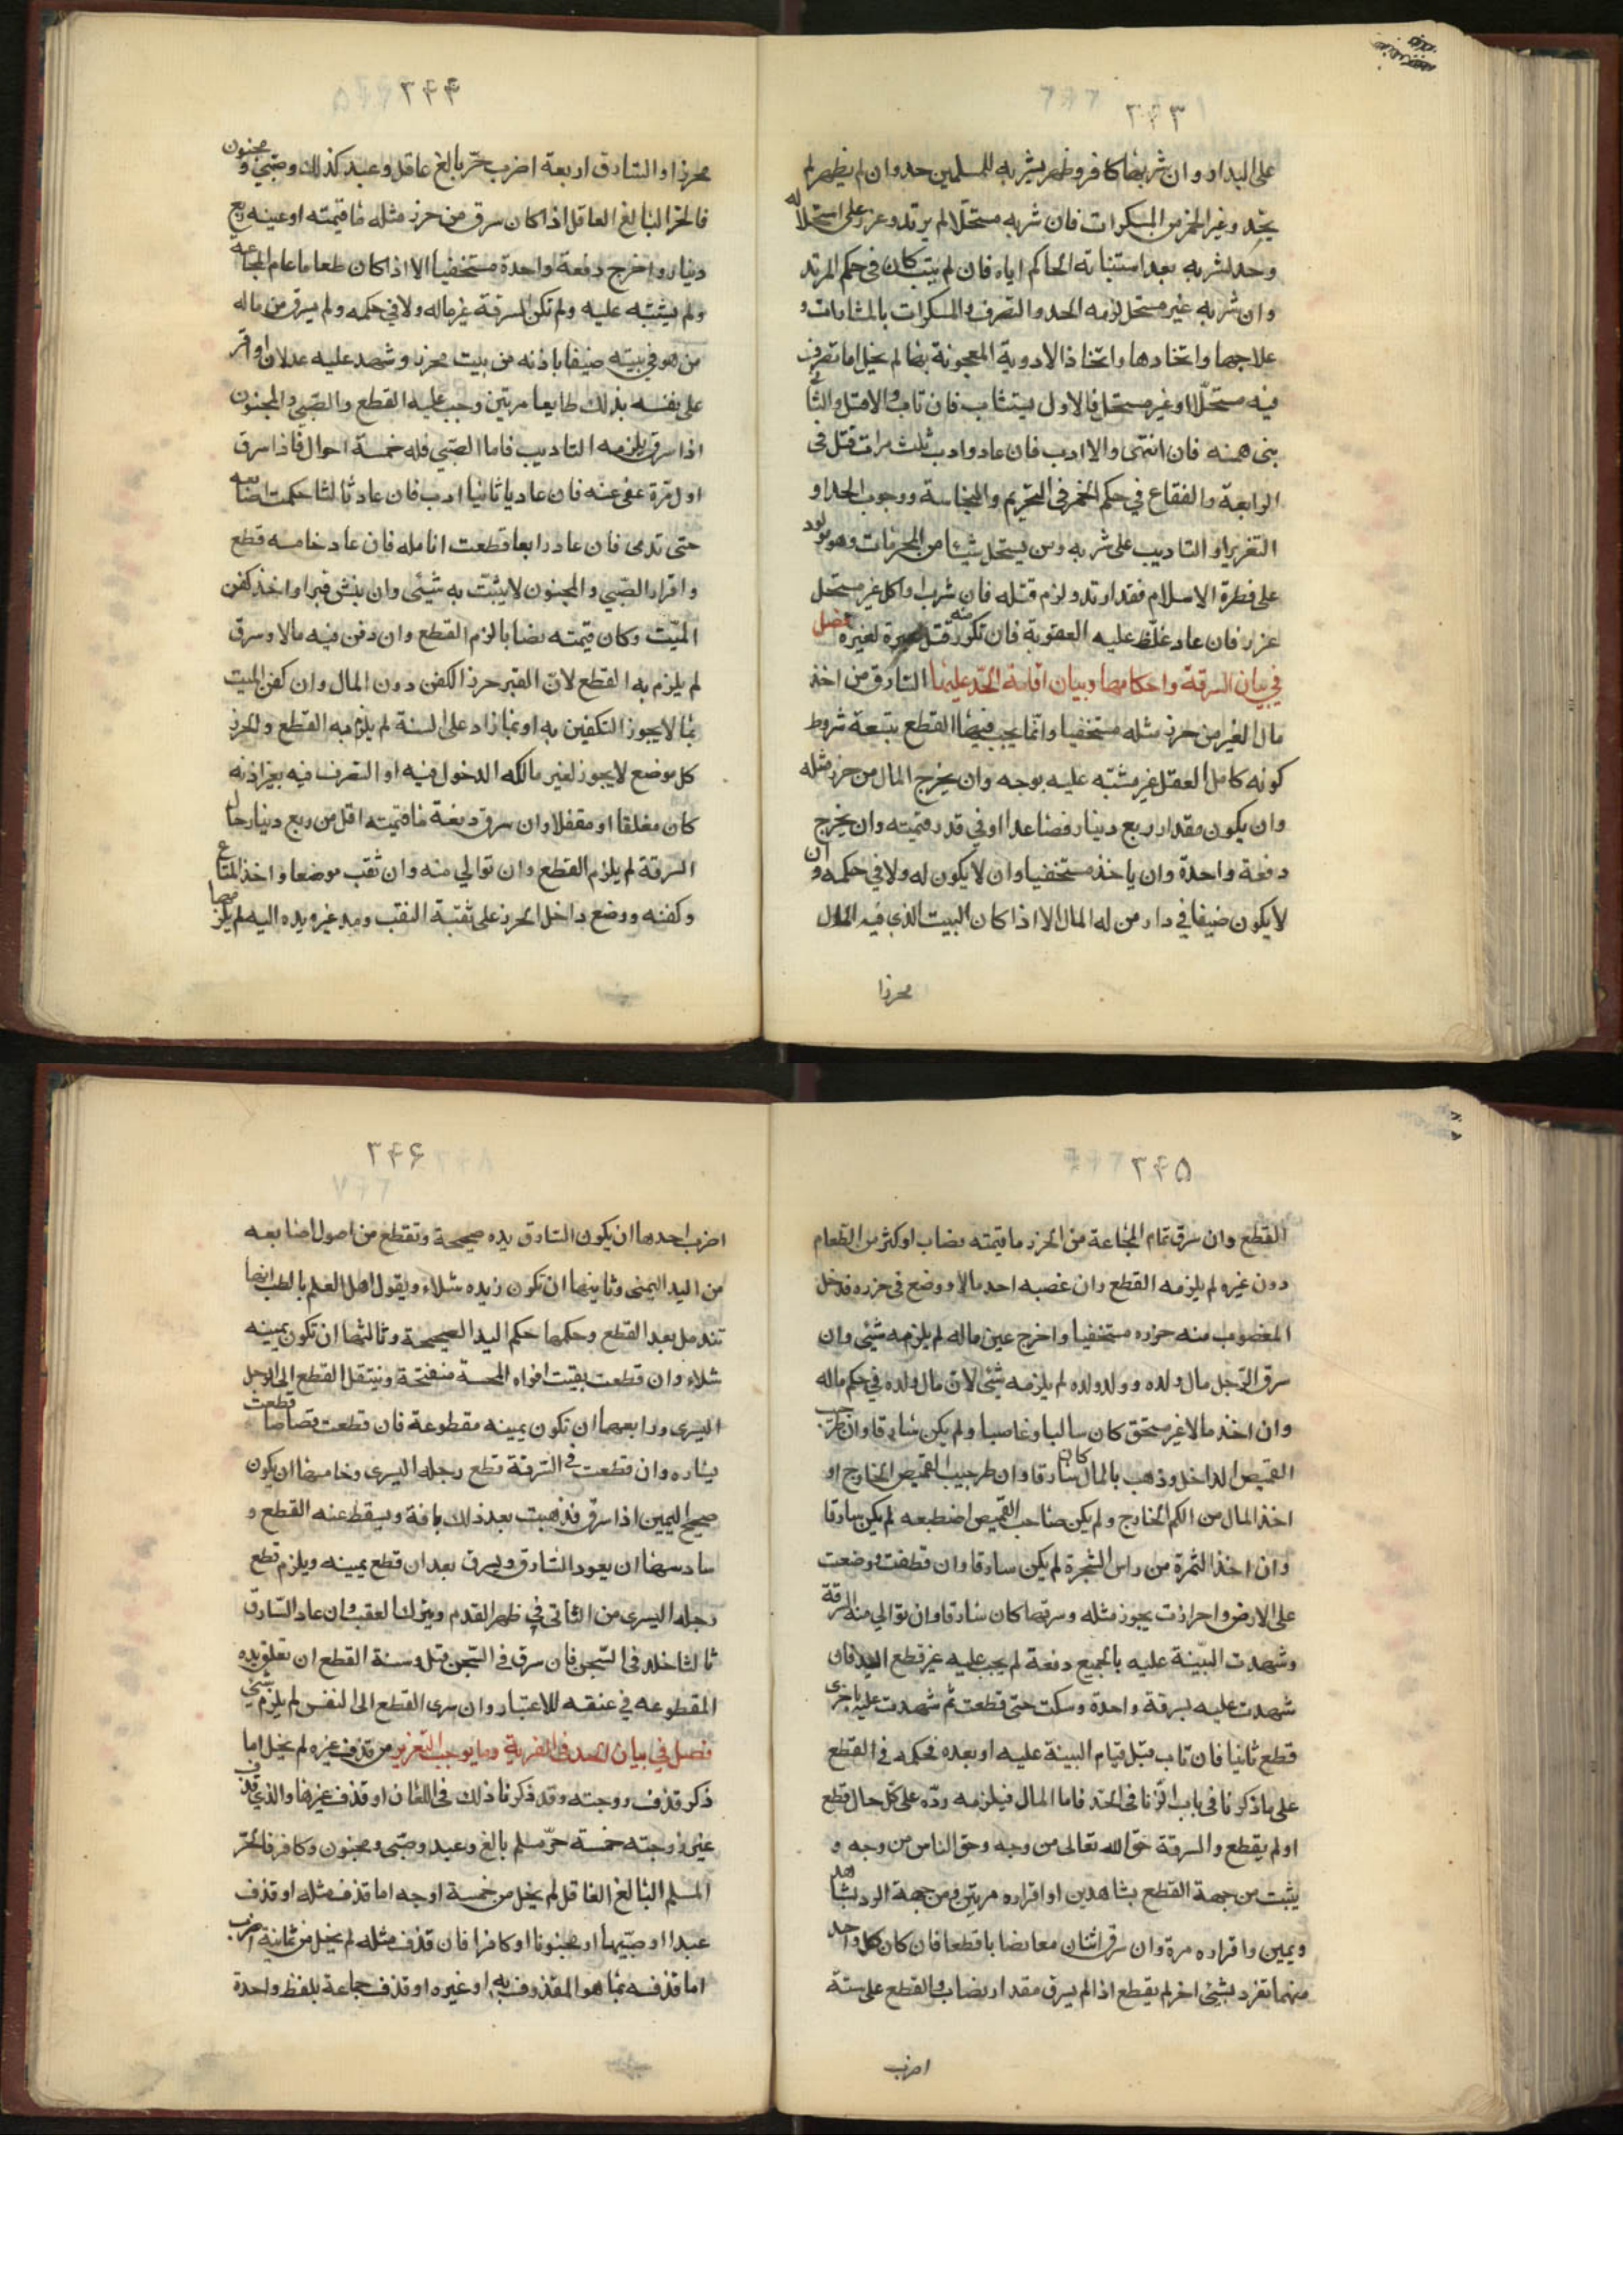 ۲۴۳
على التداو وان شربها كافر وظهر بشربه للمسلمين حد وان لم يظهر لم
يحد وغير الخمر من المسكرات فان شربه مستحلا لم يرتد وعزر على استحلاله
وحد لشربه بعد استتابة الحاكم اياه فان لم يتب كان في حكم المرتد
وان شربه غير مستحل لزمه الحد والتصرف في المسكرات بالمثابات و
علاجها واتخاذها واتخاذ الادوية المعجونة بها لم يخل اما تصرف
فيه مستحلا او غير مستحل فالاول يستتاب فان تاب والا قتل والثاني
ينهى عنه فان انتهى والا ادب فان عاد وادب ثلث مرات قتل فى
الرابعة والفقاع في حكم الخمر في التحريم والنجاسة ووجوب الحد او
التعزير او التاديب على شربه ومن يستحل شيئا من المحرمات وهو مولود
على فطرة الاسلام فقد ارتد ولزم قتله فان شرب او اكل غير مستحل
عزر فان عاد غلظ عليه العقوبة فان تكرر منه قتل عبرة لغيره فصل
في بيان السرقة واحكامها وبيان اقامة الحد عليها السارق من اخذ
مال الغير من حرز مثله مستخفيا وانما يجب فيها القطع بتسعة شروط
كونه كامل العقل غير مشتبه عليه بوجه وان يخرج المال من حرز مثله
وان يكون مقدار ربع دينار فصاعدا او في قدر قيمته وان يخرج
دفعة واحدة وان ياخذ مستخفيا وان لا يكون له ولا في حكمه وان
لا يكون ضيفا في دار من له المال الا اذا كان البيت الذي فيه المال
محرزا
۲۴۴
محرزا والسارق اربعة اضرب حر بالغ عاقل وعبد كذلك وصبي ومجنون
فالحر البالغ العاقل اذا كان سرق من حرز مثله ما قيمته او عينه ربع
دينار واخرج دفعة واحدة مستخفيا الا اذا كان طعاما عام المجاعة
ولم يشتبه عليه ولم تكن السرقة غير ماله ولا في حكمه ولم يسرق من ماله
من هو في بيته ضيفا باذنه من بيت محرز وشهد عليه عدلان او اقر
على نفسه بذلك طايعا مرتين وجب عليه القطع والصبي والمجنون
اذا سرق يلزمه التاديب فاما الصبي فله خمسة احوال فاذا سرق
اول مرة عفى عنه فان عاد يا ثانيا ادب فان عاد ثالثا حكت اصابعه
حتى تدمى فان عاد رابعا قطعت انامله فان عاد خامسه قطع
واقرار الصبي والمجنون لا يثبت به شيئى وان نبش قبرا واخذ كفن
الميت وكان قيمته نصابا لزم القطع وان دفن فيه مالا وسرق
لم يلزم به القطع لان القبر حرز الكفن دون المال وان كفن الميت
بما لا يجوز التكفين به او بما زاد على السنة لم يلزم به القطع والحرز
كل موضع لا يجوز لغير مالكه الدخول فيه او التصرف فيه بغير اذنه
كان مغلقا او مقفلا وان سرق دفعة ما قيمته اقل من ربع دينار حال
السرقة لم يلزم القطع وان توالي منه وان نقب موضعا واخذ المتاع
وكفنه ووضع داخل الحرز على نقبة النقب ومد غيره يده اليه لم يلزمهما
۲۴۵
القطع وان سرق تمام المجاعة من الحرز ما قيمته نصاب او كثر من الطعام
دون غيره لم يلزمه القطع وان غصبه احد مالا ووضع في حرزه فدخل
المغصوب منه حرزه مستخفيا واخرج عين ماله لم يلزمه شئى وان
سرق الرجل مال ولده وولد ولده لم يلزمه شئى لان مال ولده في حكم ماله
وان اخذ مالا غير مستحق كان سالبا وغاصبا ولم يكن سارقا وان طر جيب
القميص الداخل وذهب بالمال كان سارقا وان طر جيب القميص الخارج او
اخذ المال من الكم الخارج ولم يكن صاحب القميص اضطبعه لم يكن سارقا
وان اخذ الثمرة من راس الشجرة لم يكن سارقا وان قطفت ووضعت
على الارض واحرزت بحرز مثله وسرقها كان سارقا وان توالي منه السرقة
وشهدت البينة عليه بالجميع دفعة لم يجب عليه غير قطع اليد فان
شهدت عليه بسرقة واحدة وسكت حتى قطعت ثم شهدت عليه باخرى
قطع ثانيا فان تاب قبل قيام البينة عليه او بعده فحكمه في القطع
على ما ذكرنا في باب الزنا في الحد فاما المال فيلزمه رده على كل حال قطع
او لم يقطع والسرقة حق الله تعالى من وجه وحق الناس من وجه و
يثبت من جهة القطع بشاهدين او اقراره مرتين ومن جهة الرد بشاهد
ويمين واقراره مرة وان سرق اثنان معا نصابا قطعا فان كان كل واحد
منهما تفرد بشئى اخر لم يقطع اذا لم يسرق مقدار نصاب والقطع على ستة
اضرب
۲۴۶
اضرب احدها ان يكون السارق يده صحيحة وتقطع من اصول اصابعه
من اليد اليمنى وثانيها ان تكون يده شلاء ويقول اهل العلم بالطب انها
تندمل بعد القطع وحكمها حكم اليد الصحيحة وثالثها ان تكون يمينه
شلاء وان قطعت بقيت افواه المحسة منفتحة وينتقل القطع الى الرجل
اليسرى ورابعها ان تكون يمينه مقطوعة فان قطعت قصاصا قطعت
يساره وان قطعت في السرقة قطع رجله اليسرى وخامسها ان يكون
صحيح اليمين اذا سرق فذهبت بعد ذلك بافة ويسقط عنه القطع و
سادسها ان يعود السارق ويسرق بعد ان قطع يمينه ويلزم قطع
رجله اليسرى من الناتي في ظهر القدم ويترك العقب وان عاد السارق
ثالثا خلد في السجن فان سرق في السجن قتل وسنة القطع ان تعلق يده
المقطوعه في عنقه للاعتبار وان سرى القطع الى النفس لم يلزم شئي
فصل في بيان الحد في الفرية وما يوجب التعزير من قذف غيره لم يخل اما
ذكر قذف زوجته وقد ذكرنا ذلك في اللعان او قذف غيرها والذي قذف
غير زوجته خمسة حر مسلم بالغ وعبد وصبى ومجنون وكافر فالحر
المسلم البالغ العاقل لم يخل من خمسة اوجه اما قذف مثله او قذف
عبدا او صبيا او مجنونا او كافرا فان قذف مثله لم يخل من ثمانية اضرب
اما قذفه بما هو المقذوف به او غيره او قذف جماعة بلفظ واحدة